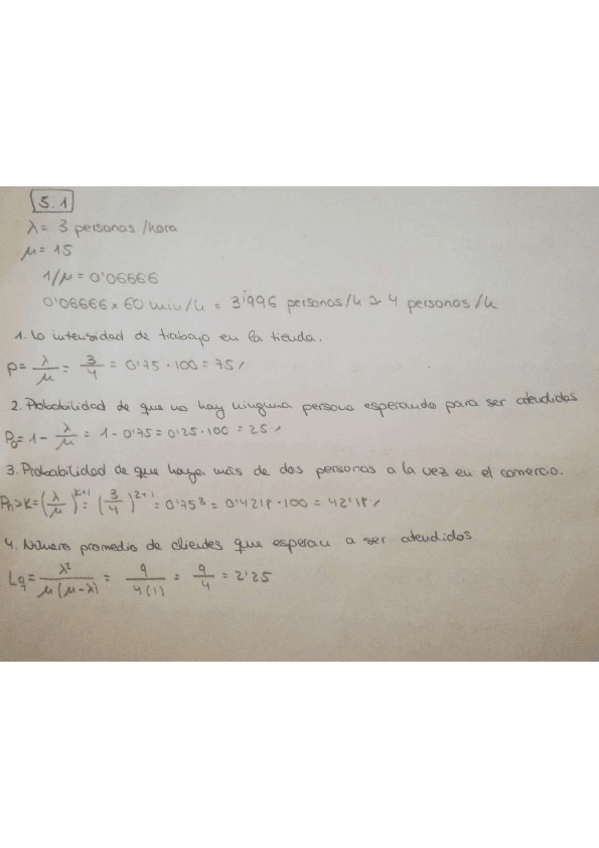 5.1
λ = 3 personas /hora
μ = 15
1/μ = 0'06666
0'06666 x 60 min/h = 3'996 personas/h ≃ 4 personas/h
1. La intensidad de trabajo en la tienda.
ρ = λ/μ = 3/4 = 0'75 · 100 = 75%
2. Probabilidad de que no hay ninguna persona esperando para ser atendidos
P₀ = 1 - λ/μ = 1 - 0'75 = 0'25 · 100 = 25%
3. Probabilidad de que haya más de dos personas a la vez en el comercio.
Pn>k = (λ/μ)^k+1 = (3/4)^2+1 = 0'75³ = 0'4218 · 100 = 42'18%
4. Número promedio de clientes que esperan a ser atendidos.
Lq = λ²/μ(μ-λ) = 9/4(1) = 9/4 = 2'25